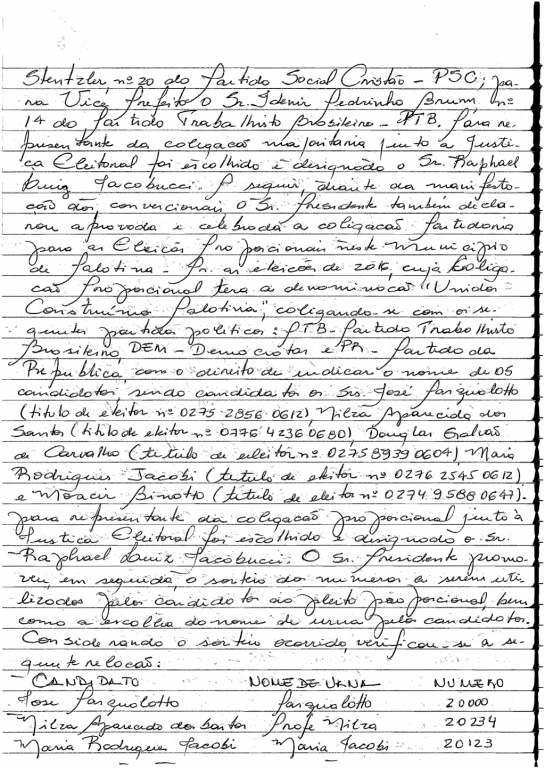 Stentzler, nº 20 do Partido Social Cristão - PSC; pa-
ra Vice Prefeito o Sr. Idenir Pedrinho Brum nº
14 do Partido Trabalhista Brasileiro - PTB. Para re-
presentante da coligação majoritária junto à Justi-
ça Eleitoral foi escolhido e designado o Sr. Raphael
Luiz Jacobucci. A seguir, diante da manifesta-
ção dos convencionais o Sr. Presidente também decla-
rou aprovada e celebrada a coligação partidária
para as Eleições Proporcionais neste Município
de Palotina - Pr. as eleições de 2016, cuja Coliga-
ção Proporcional terá a denominação "Unidos
Construindo Palotina", coligando-se com os se-
guintes partidos políticos: PTB - Partido Trabalhista
Brasileiro, DEM - Democratas e PR - Partido da
República, com o direito de indicar o nome de 05
candidatos, sendo candidatos os Srs. José Pasqualotto
(título de eleitor nº 0275 2856 0612), Nilza Aparecida dos
Santos (título de eleitor nº 0776 4236 0680), Douglas Galvão
de Carvalho (título de eleitor nº 0275 8939 0604), Maria
Rodrigues Jacobi (título de eleitor nº 0276 2545 0612)
e Moacir Binotto (título de eleitor nº 0274 9588 0647).
para representante da coligação proporcional junto à
Justiça Eleitoral foi escolhido e designado o Sr.
Raphael Luiz Jacobucci. O Sr. Presidente promo-
veu, em seguida, o sorteio dos números a serem uti-
lizados pelos candidatos ao pleito proporcional, bem
como a escolha do nome de urna pelos candidatos.
Considerando o sorteio ocorrido, verificou-se a se-
guinte relação:
CANDIDATO NOME DE URNA NUMERO
José Pasqualotto Pasqualotto 20000
Nilza Aparecida dos Santos Profe Nilza 20234
Maria Rodrigues Jacobi Maria Jacobi 20123